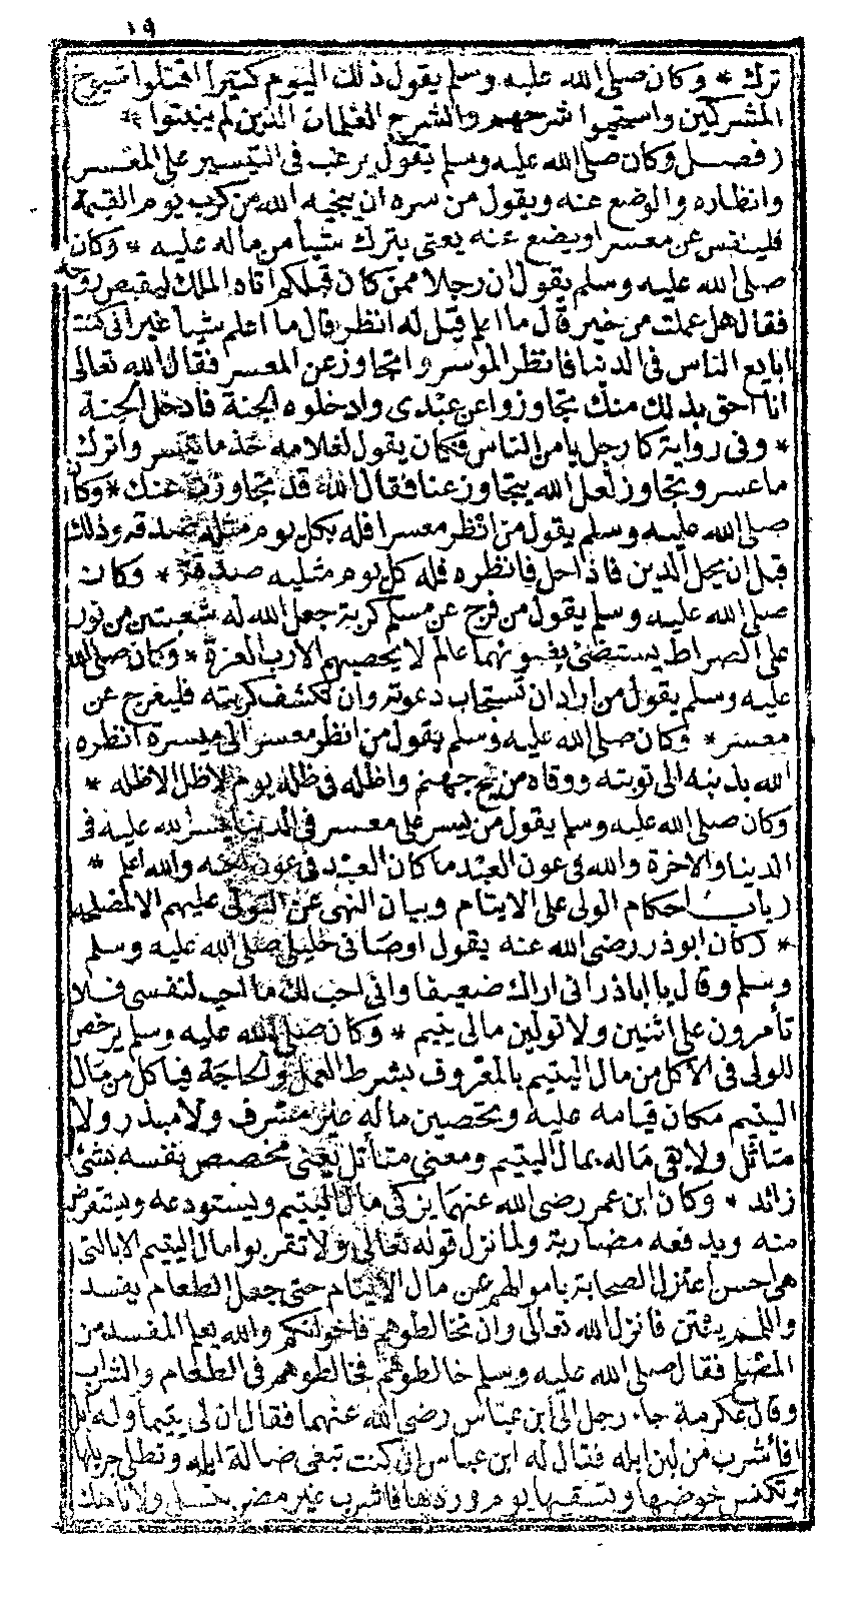 ١٩
ترك * وكان صلى الله عليه وسلم يقول ذلك اليوم كثيرا اقتلوا شيوخ
المشركين واستحيوا شرخهم والشرخ الغلمان الذين لم ينبتوا *
(فصل) وكان صلى الله عليه وسلم يقول يرغب في التيسير على المعسر
وانظاره والوضع عنه ويقول من سره ان ينجيه الله من كرب يوم القيمة
فلينفس عن معسر او يضع عنه يعني يترك شيأ من ماله عليه * وكان
صلى الله عليه وسلم يقول ان رجلا ممن كان قبلكم اتاه الملك ليقبض روحه
فقال هل عملت من خير قال ما اعلم قيل له انظر قال ما اعلم شيأ غير اني كنت
ابايع الناس في الدنيا فانظر الموسر واتجاوز عن المعسر فقال الله تعالى
انا احق بذلك منك تجاوزوا عن عبدي وادخلوه الجنة فادخل الجنة
* وفي رواية كا رجل يا من الناس فكان يقول لغلامه خذ ما تيسر واترك
ما عسر وتجاوز لعل الله يتجاوز عنا فقال الله قد تجاوزت عنك * وكان
صلى الله عليه وسلم يقول من انظر معسرا فله بكل يوم مثله صدقه وذلك
قبل ان يحل الدين فاذا حل فانظره فله كل يوم مثليه صدقة * وكان
صلى الله عليه وسلم يقول من فرج عن مسلم كربة جعل الله له شعبتين من نور
على الصراط يستضئ بضوئهما عالم لا يحصيهم الا رب العزة * وكان صلى الله
عليه وسلم يقول من اراد ان تستجاب دعوته وان تكشف كربته فليفرج عن
معسر * وكان صلى الله عليه وسلم يقول من انظر معسرا الى ميسرة انظره
الله بذنبه الى توبته ووقاه من فيح جهنم واظله في ظله يوم لا ظل الا ظله *
وكان صلى الله عليه وسلم يقول من يسر على معسر في الدنيا يسر الله عليه في
الدنيا والاخرة والله في عون العبد ما كان العبد في عون اخيه والله اعلم *
(باب) احكام الولي على الايتام وبيان النهي عن التولي عليهم الا لمصلحة
* (كان ابو ذر رضي الله عنه يقول اوصاني خليلي صلى الله عليه وسلم
وسلم وقال يا ابا ذر اني اراك ضعيفا واني احب لك ما احب لنفسي فلا
تأمرون على اثنين ولا تولين مال يتيم * وكان صلى الله عليه وسلم يرخص
للولي في الاكل من مال اليتيم بالمعروف بشرط العمل والحاجة فياكل من مال
اليتيم مكان قيامه عليه وتحصين ماله غير مسرف ولا مبذر ولا
متاثل ولا يقي ماله بمال اليتيم ومعنى متأثل يعني مخصص نفسه بشئ
زائد * وكان ابن عمر رضي الله عنهما يزكي مال اليتيم ويستودعه ويستقرض
منه ويدفعه مضاربة ولما نزل قوله تعالى ولا تقربوا مال اليتيم الا بالتي
هي احسن اعتزل الصحابة باموالهم عن مال الايتام حتى جعل الطعام يفسد
واللحم ينتن فانزل الله تعالى وان تخالطوهم فاخوانكم والله يعلم المفسد من
المصلح فقال صلى الله عليه وسلم خالطوهم فخالطوهم في الطعام والشراب
وقال عكرمة جاء رجل الى ابن عباس رضي الله عنهما فقال ان لي يتيما وله ابل
افأشرب من لبن ابله فقال له ابن عباس ان كنت تبغي ضالة ابله وتطلي جرباها
وتكنس حوضها وتسقيها يوم وردها فاشرب غير مضر بنسل ولا ناهك